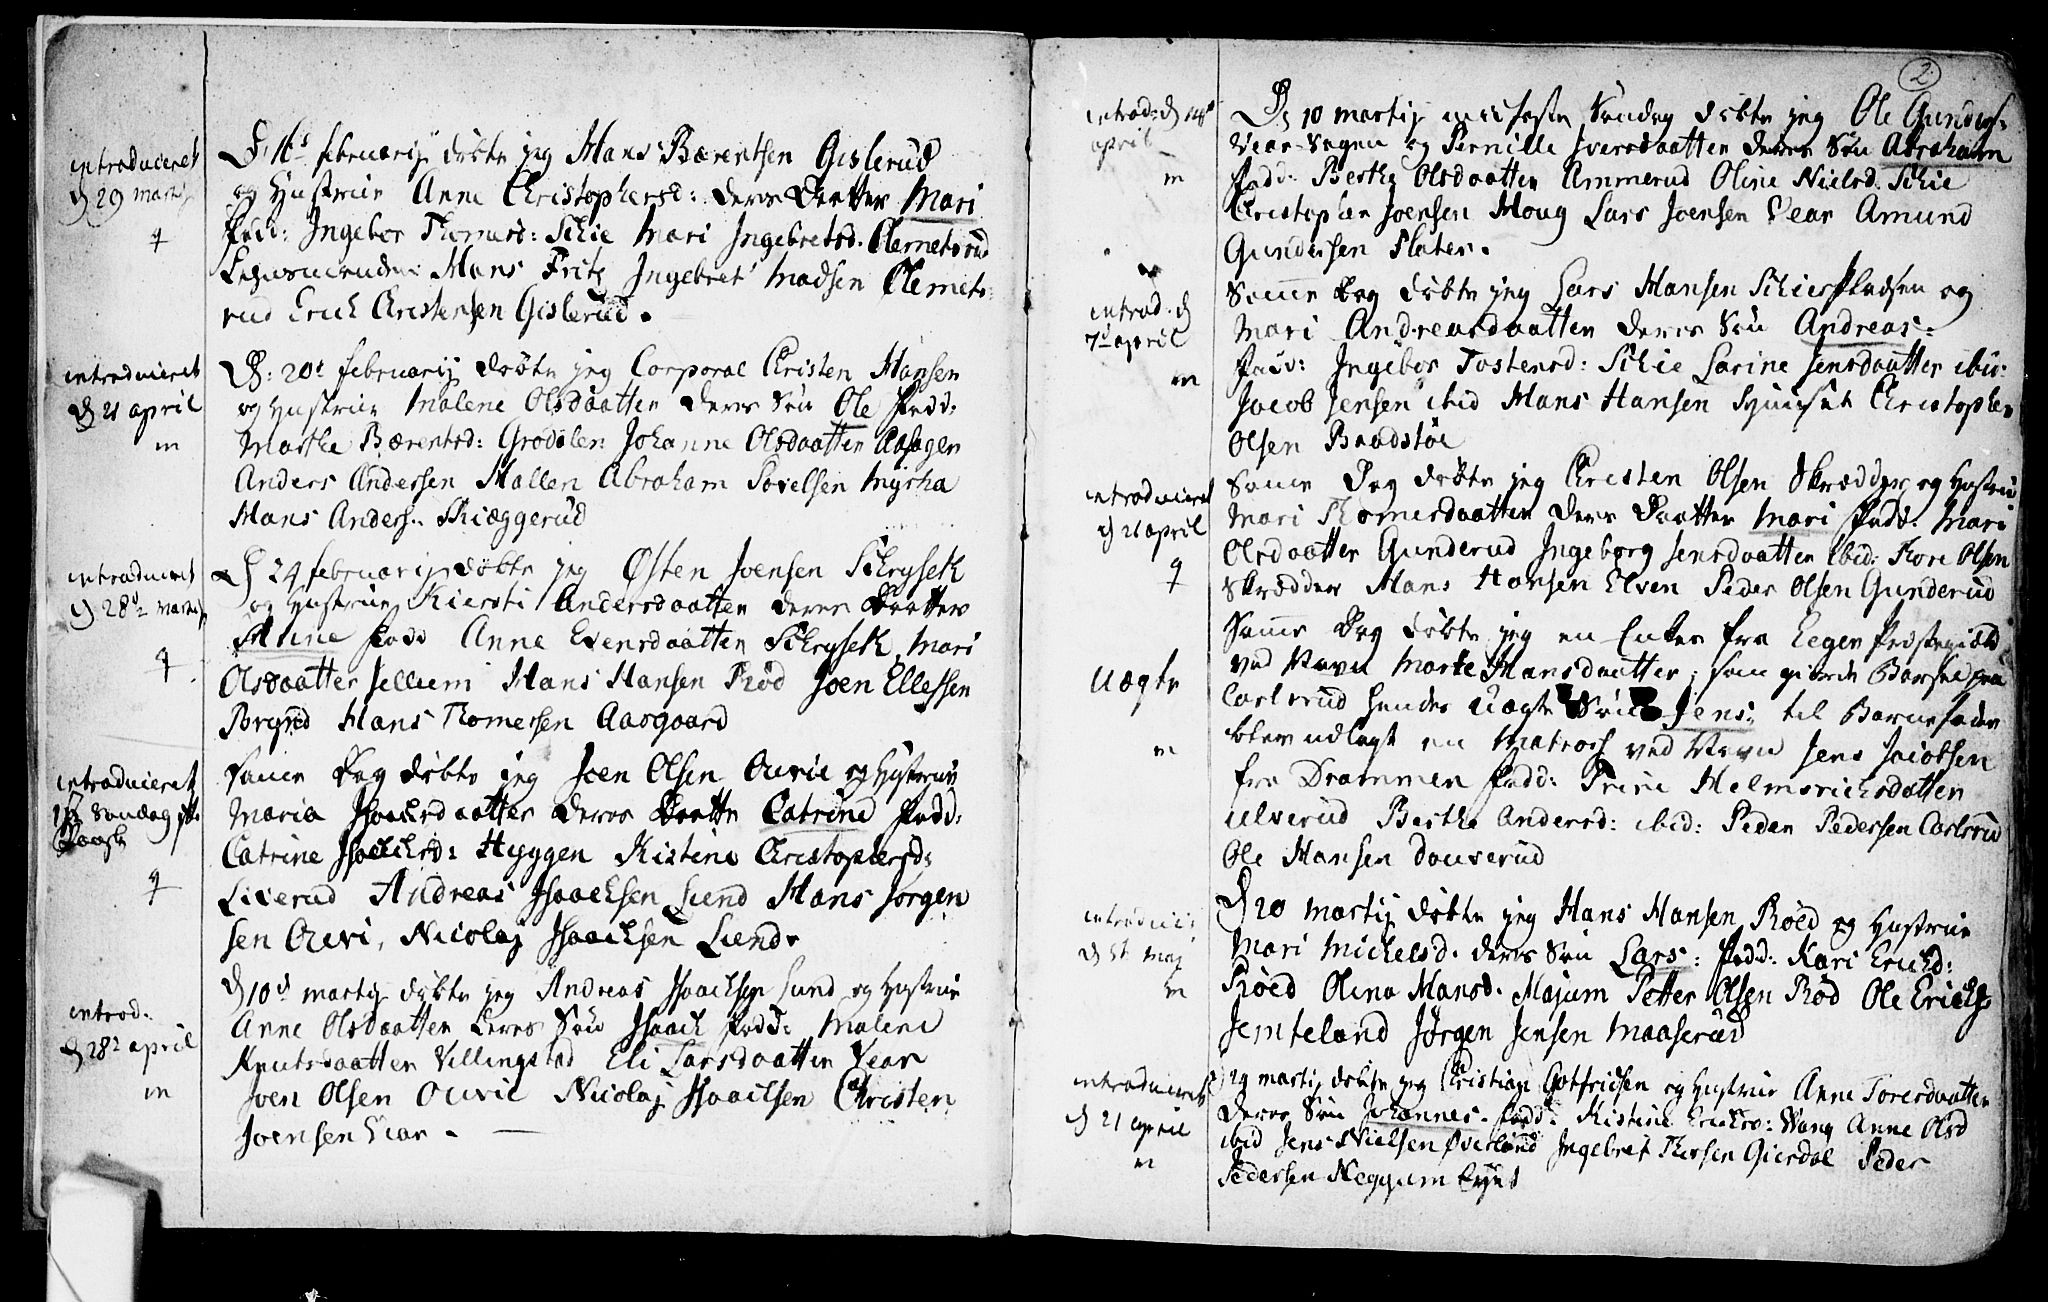 introduceret
d 29 martij
q
D. 16 februarij døbte jeg Hans Bærentsen Gislerud
og Hustrue Anne Christophersd: deres Daatter Mari
Fadd: Ingebor Thomesd: Schie Mari Ingebretsd. Clemetsrud
Hans Fritz Ingebret Madsen Clemets
rud Erich Christensen Gislerud.
introduceret
d 21 april
m
D: 20 februarij døbte jeg Corporal Christen Hansen
og Hustrue Malene Olsdaatter deres Søn Ole Fadd:
Marthe Bærentsd: Grodalen Johanne Olsdaatter Aasagen
Anders Andersen Hallen Abraham Povelsen Myrha
Hans Anders: Skiæggerud
introduceret
d 28 martij
q
D 24 februarij døbte jeg Østen Joensen Schryseth
og Hustrue Kiersti Andersdaatter deres Daatter
Anne Fadd Anne Evensdaatter Schryseth Mari
Olsdaatter Jellum Hans Hansen Rød Joen Ellefsen
Hans Thomessen Aasgaard
introduceret
1 Søndag eft:
Paasche
q
Samme Dag døbte jeg Joen Olsen Ourie og Hustrue
Maria Isaachsdaatter deres Daatter Catrine Fadd:
Catrine Isaachsd: Hyggen Kistine Christophersd:
Liverud Andreas Isaachsen Lund Hans Jørgen
sen Ouri, Nicolaj Isaachsen Lund.
introd:
d 28 april
m
D 10 martij døbte jeg Andreas Isaachsen Lund og Hustrue
Anne Olsdaatter deres Søn Isaach Fadd: Malene
Knutsdaatter Villingstad Eli Larsdaatter Vear
Joen Olsen Ourie Nicolaj Isaachsen Christen
Joensen Vear.
2
introd: d 14
april
m
D, 10 martij midfaste Søndag døbte jeg Ole Gunders:
Vear-Vogen og Pernille Iversdaatter deres Søn Abraham
Fadd: Berthe Olsdaatter Ammerud Oline Nielsd. Schie
Christopher Joensen Houg Lars Joensen Vear Amund
Gundersen Slater.
introd. d
7 april
m
Samme Dag døbte jeg Lars Hansen Schiespladsen og
Mari Andreasdaatter deres Søn Andreas:
Fadd: Ingebor Tostensd: Schie Karine Jensdaatter ibid:
Jacob Jensen ibid Hans Hansen Christopher
Olsen Baadstøe
introduceret
d 21 april
q
Samme Dag døbte jeg Christen Olsen Skrædder og Hustrue
Mari Thomesdaatter deres Daatter Mari Fadd: Mari
Olsdaatter Gunderud Ingeborg Jensdaatter ibid: Thore Olsen
Skrædder Hans Hansen Elven Peder Olsen Gunderud
Uægte
m
Samme Dag døbte jeg en Enke fra Eeger Præstegield
ved Navn Marte Hansdaatter, som giorde Barsel paa
Carlsrud hendes Uægte Søn Jens, til Barnefader
blev udlagt en Matros ved Navn Jens Jacobsen
fra Drammen Fadd: Trine Helmerichsdatter
Ulverud Berthe Andersd: ibid: Peder Pedersen Carlsrud
Ole Hansen Douverud
introduc:
d 5 Maj
m
D 20 martij døbte jeg Hans Hansen Røed og Hustrue
Mari Michelsd. deres Søn Lars: Fadd: Kari Erichsd:
Røed Olena Hansd. Majum Petter Olsen Rød Ole Erichs
Jemteland Jørgen Jensen Maaserud
introduceret
d 21 april
m
D 29 martij døbte jeg Christian Gotfridsen og Hustrue Anne Toresdaatter
deres Søn Johannes. Fadd: Kistine Erichsd: Wang Anne Olsd
ibid Jens Nielsen Øverland Ingebret Thorsen Gierdal Peder
Pedersen Heggum